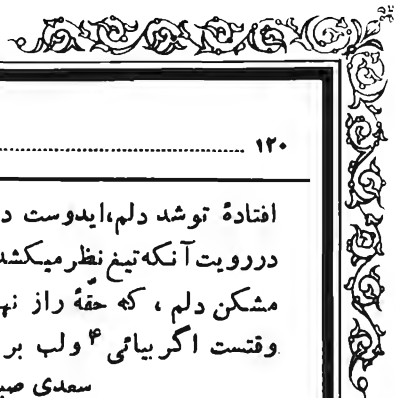 ۱۲۰ ........................................
افتادهٔ توشد دلم،ایدوست د
دررویت آنکه تیغ نظر میکشد
مشکن دلم ، که حقّهٔ راز نه
وقتست اگر بیائی ۴ ولب بر
سعدی صب